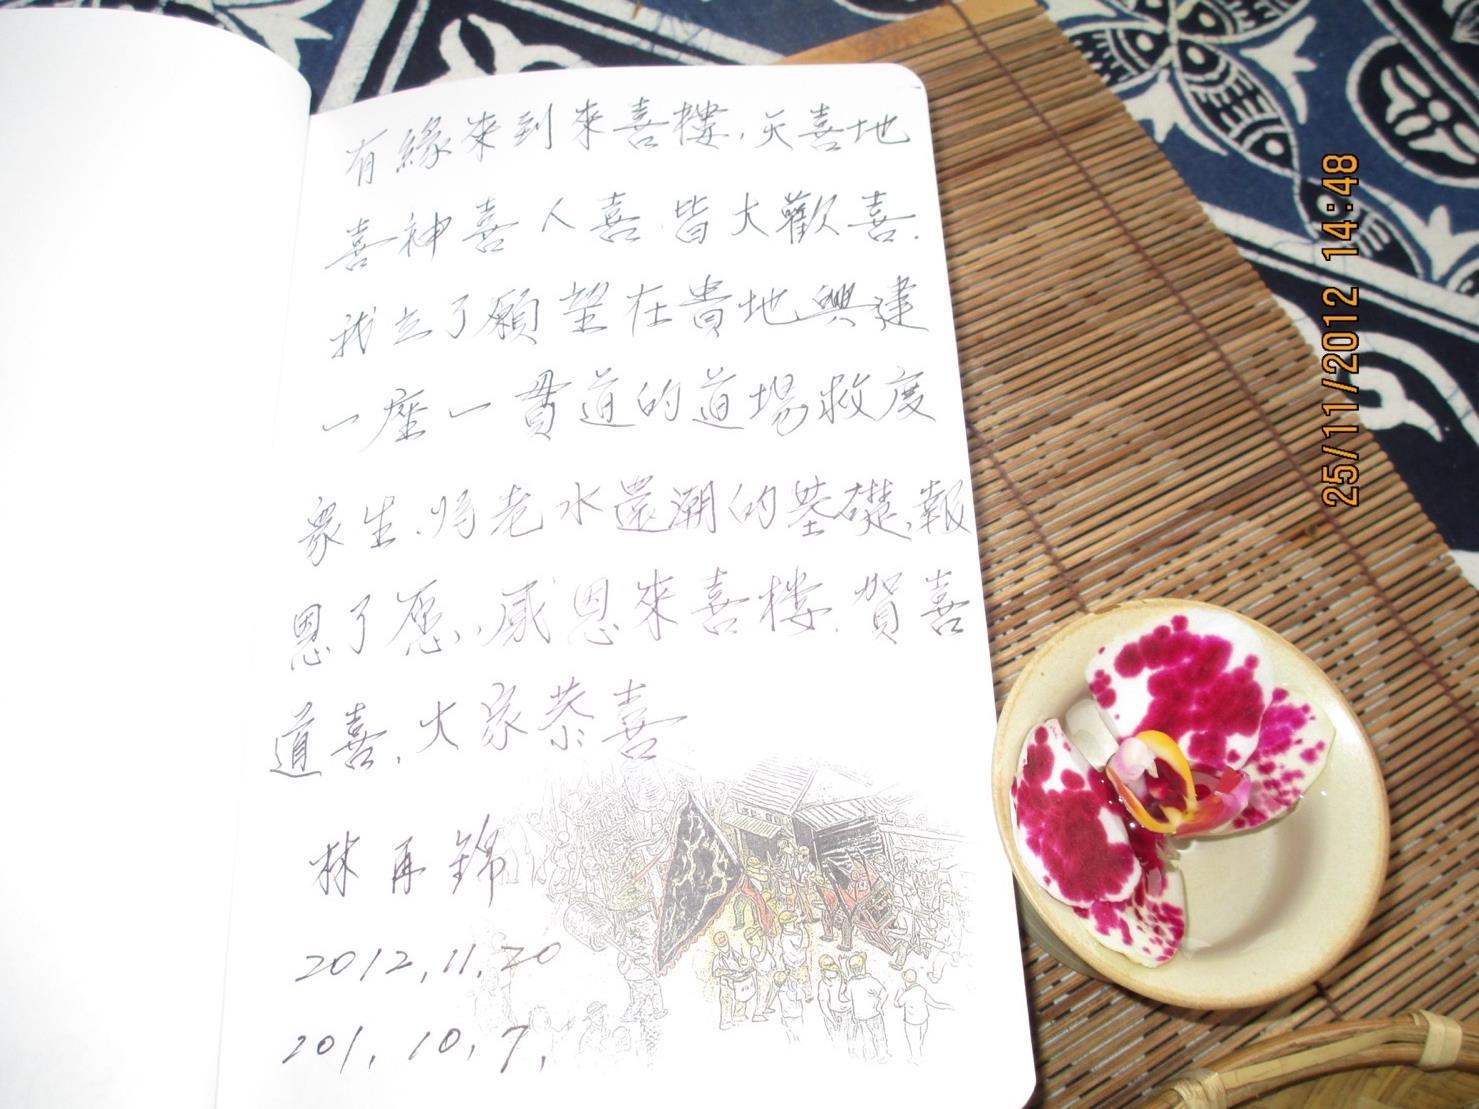 有緣來到來喜樓，天喜地
喜神喜人喜，皆大歡喜．
我立了願望在貴地興建
一座一貫道的道場救度
眾生．將老水還潮的基礎，報
恩了愿，感恩來喜樓．賀喜
道喜．大家恭喜
林再錦
2012.11.20
201.10.7.
25/11/2012 14:48